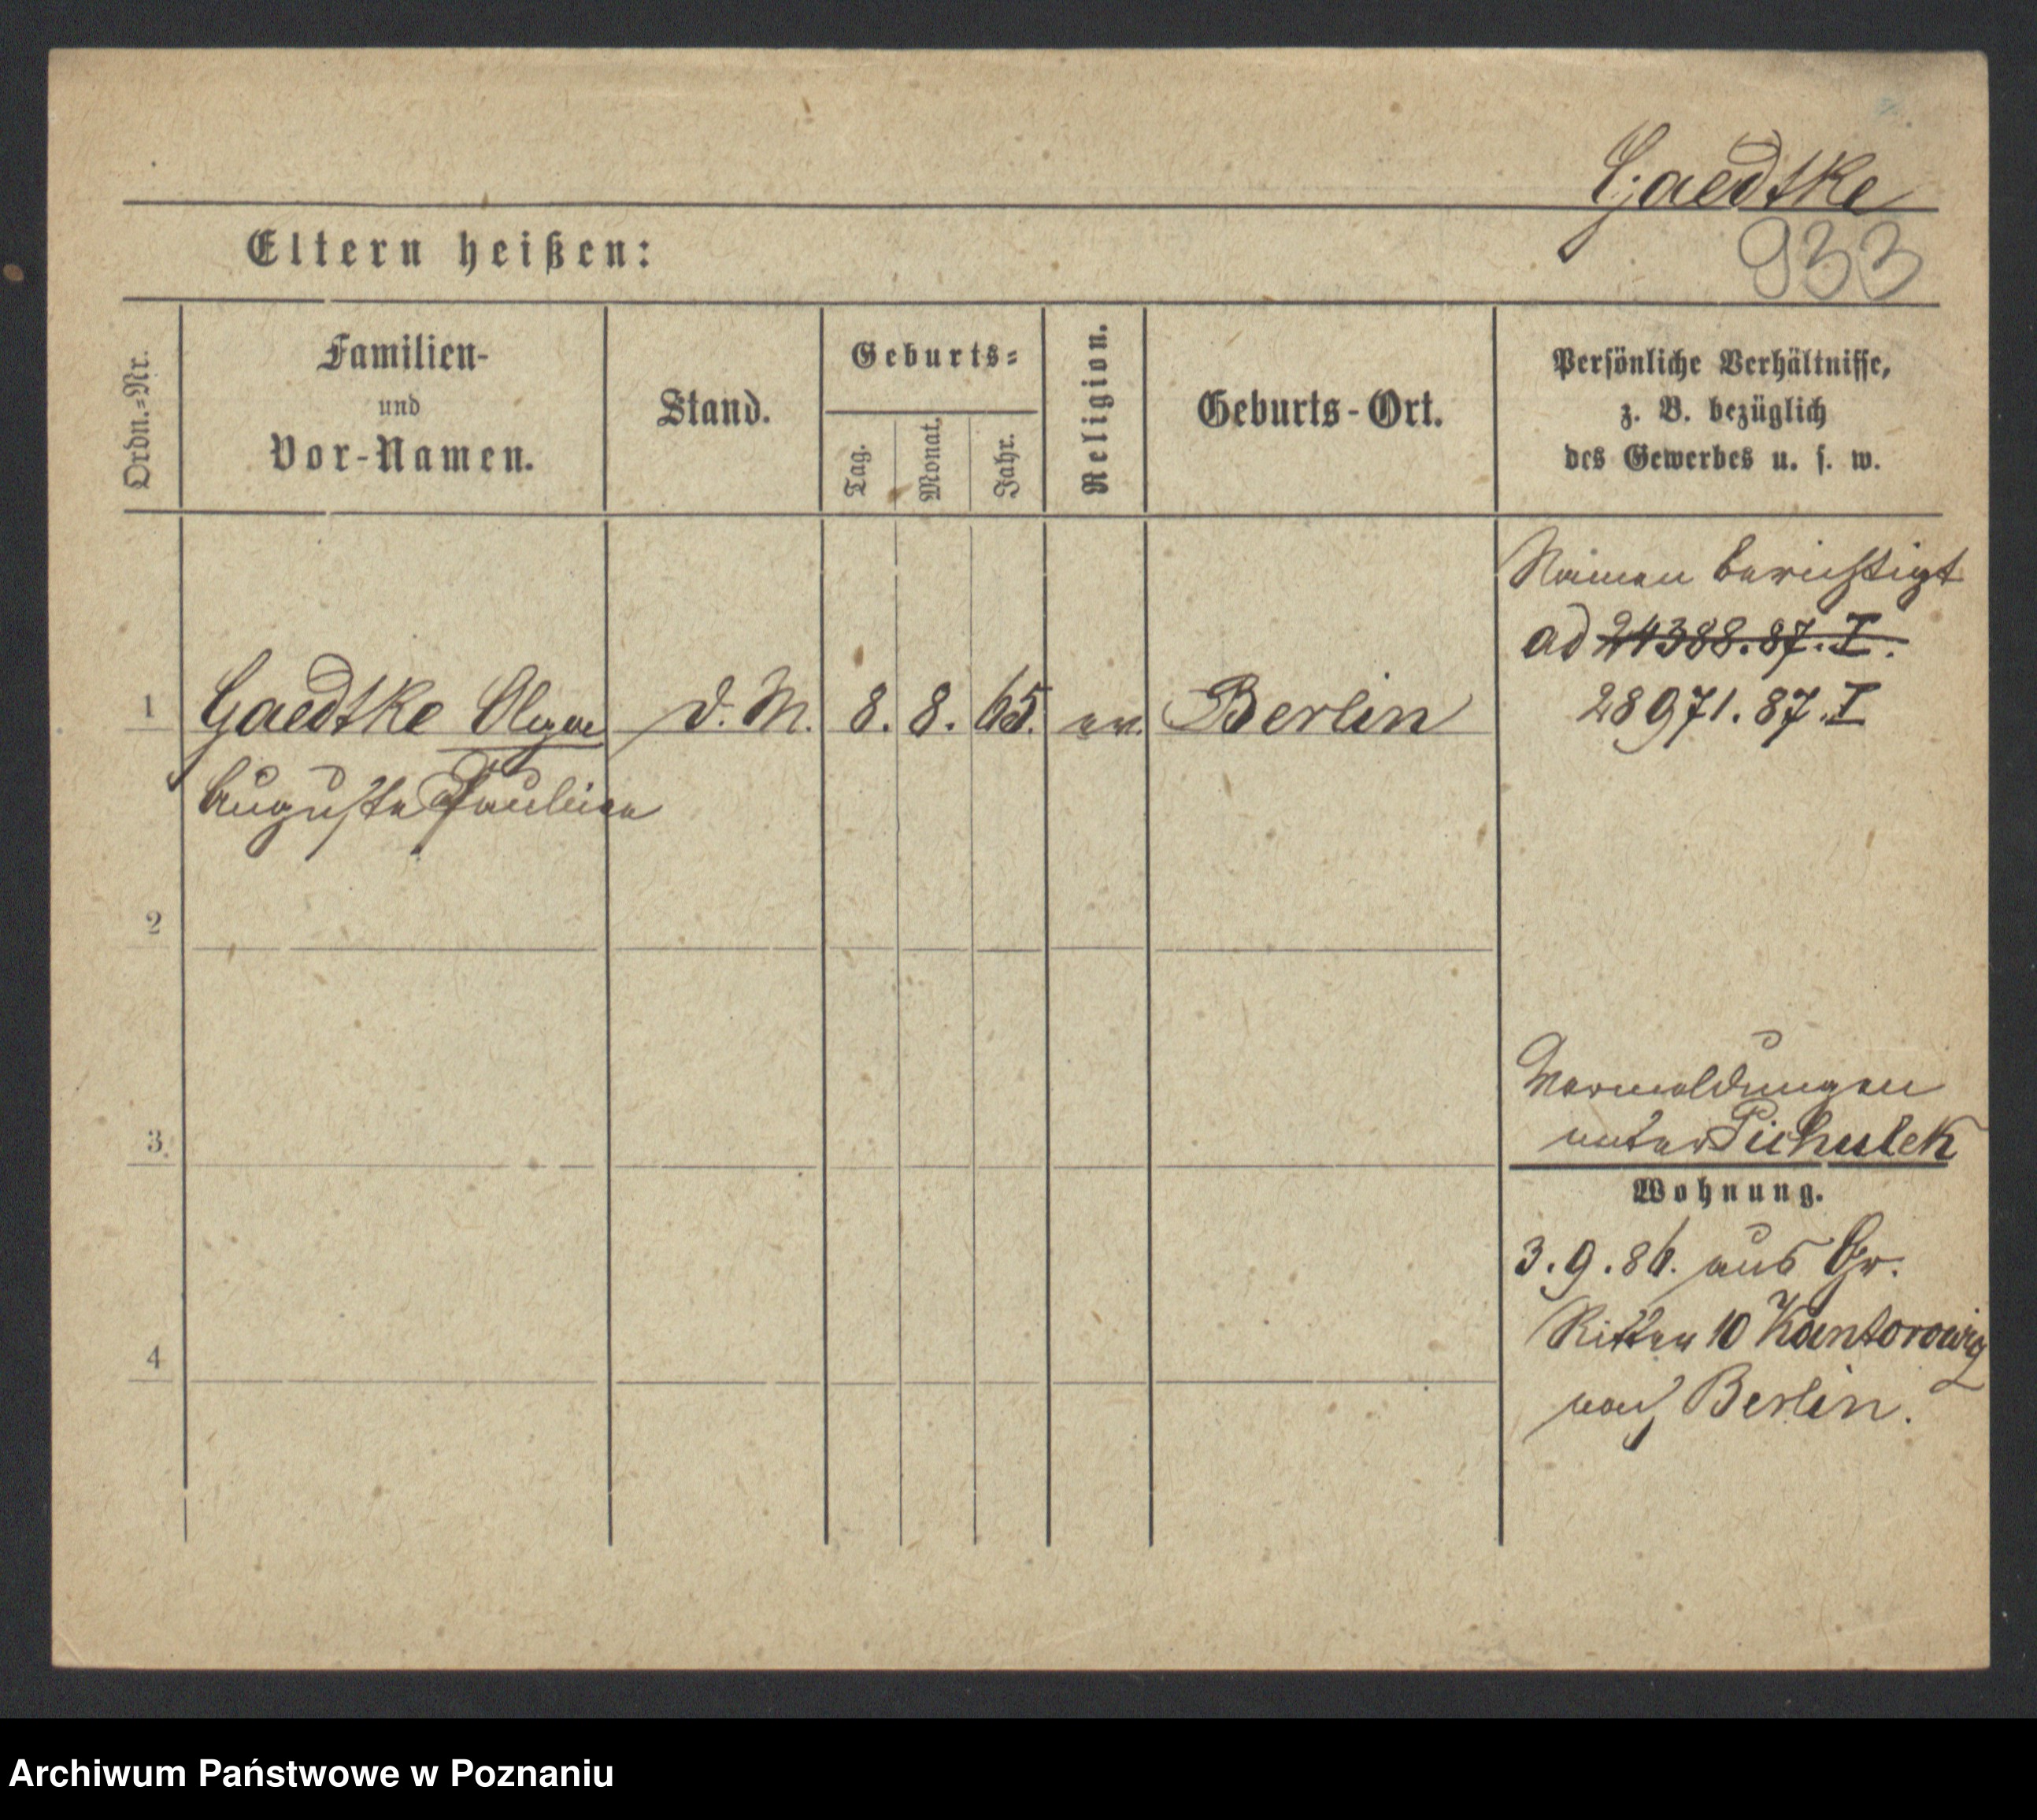 Gaedtke
933
Eltern heißen:
Ordn.-Nr.
Familien-
und
Vor-Namen.
Stand.
Geburts-
Tag.
Monat.
Jahr.
Religion.
Geburts-Ort.
Persönliche Verhältnisse,
z. B. bezüglich
des Gewerbes u. s. w.
Namen berichtigt
ad 24388.87.I.
28971.87.I
1 Gaedtke Olga d. M. 8. 8. 65. ev. Berlin
Auguste Pauline
2
3.
4
Vormeldungen
unter Pichulek
Wohnung.
3.9.86. aus Gr.
Ritter 10 Kantorowicz
nach Berlin.
Archiwum Państwowe w Poznaniu